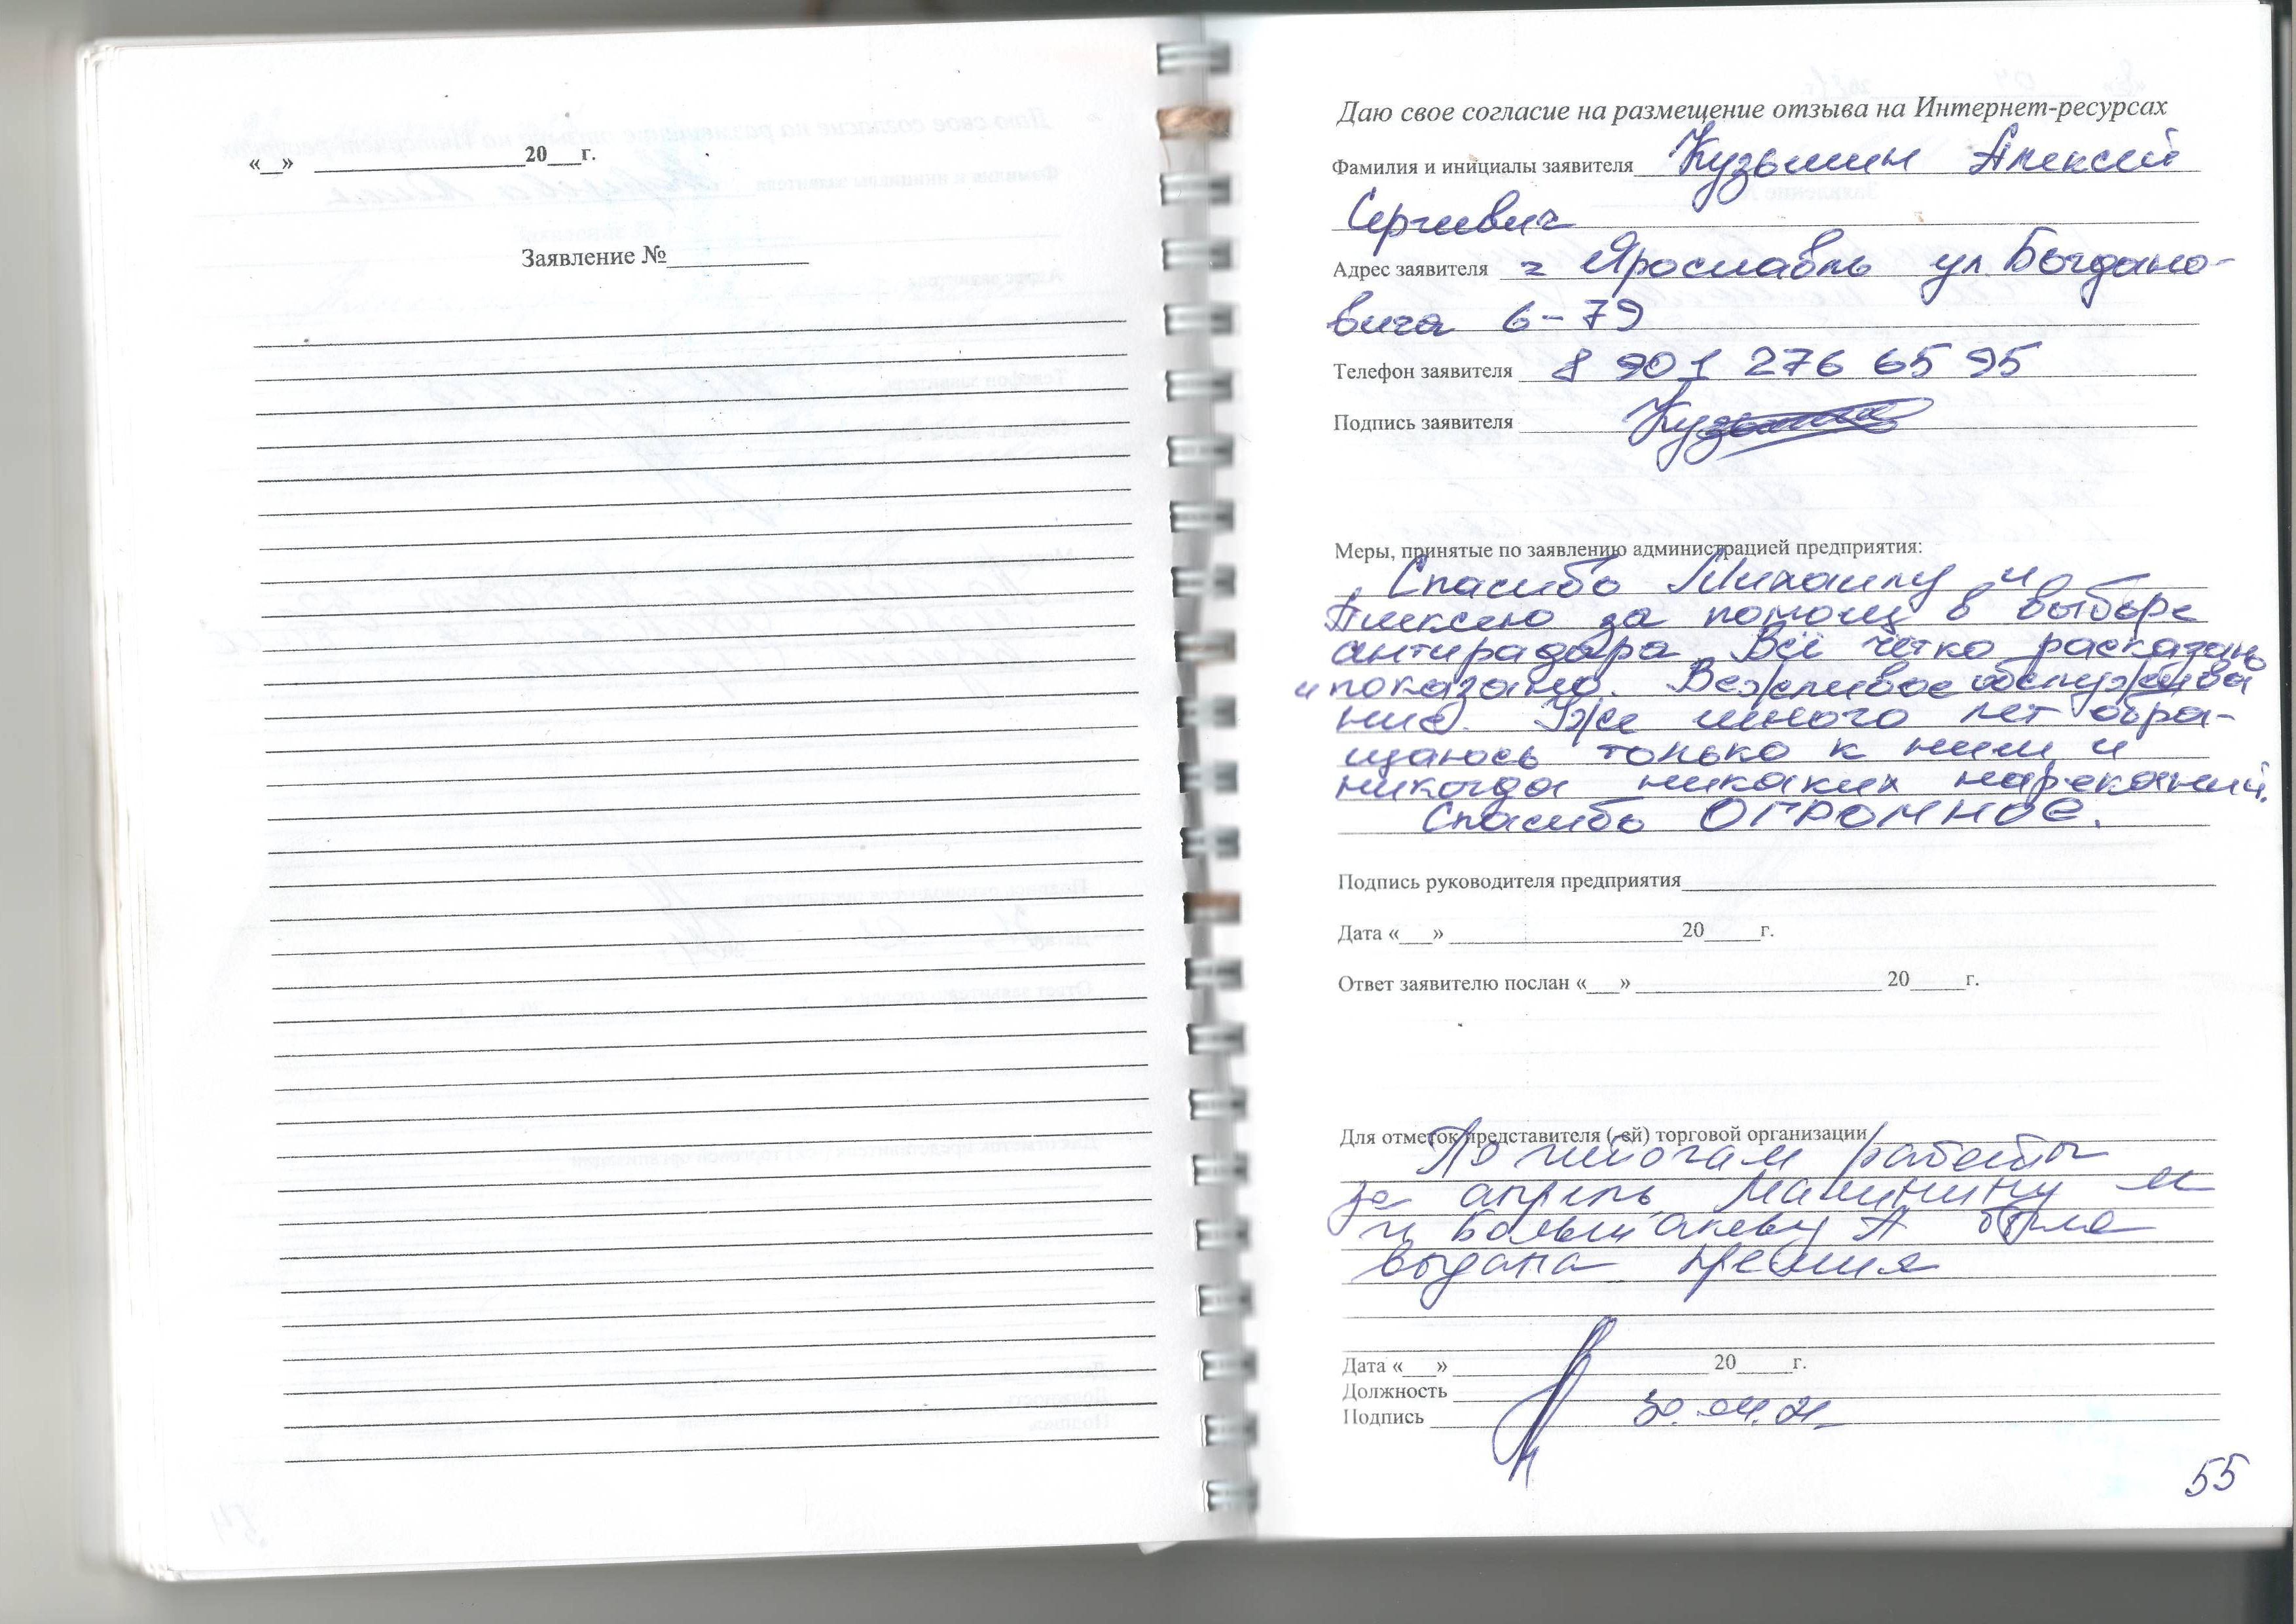 «__» ________________20___г.
Заявление №___________
Даю свое согласие на размещение отзыва на Интернет-ресурсах
Фамилия и инициалы заявителя Кузьмин Алексей
Сергеевич
Адрес заявителя г Ярославль ул. Богдано-
вича 6-79
Телефон заявителя 8 901 276 65 95
Подпись заявителя Кузьмин
Меры, принятые по заявлению администрацией предприятия:
Спасибо Михаилу и
Алексею за помощь в выборе
антирадара. Всё чётко расказано
и показано. Вежливое обслужива
ние. Уже много лет обра-
щаюсь только к ним и
никогда никаких нареканий.
Спасибо ОГРОМНОЕ.
Подпись руководителя предприятия
Дата «___» ____________________20_____г.
Ответ заявителю послан «___» ______________________ 20_____г.
Для отметок представителя (-ей) торговой организации
По итогам работы
за апрель Малинину М
и Большакову А была
выдана премия
Дата «___» ______________________ 20_____г.
Должность
Подпись 30.04.21
55